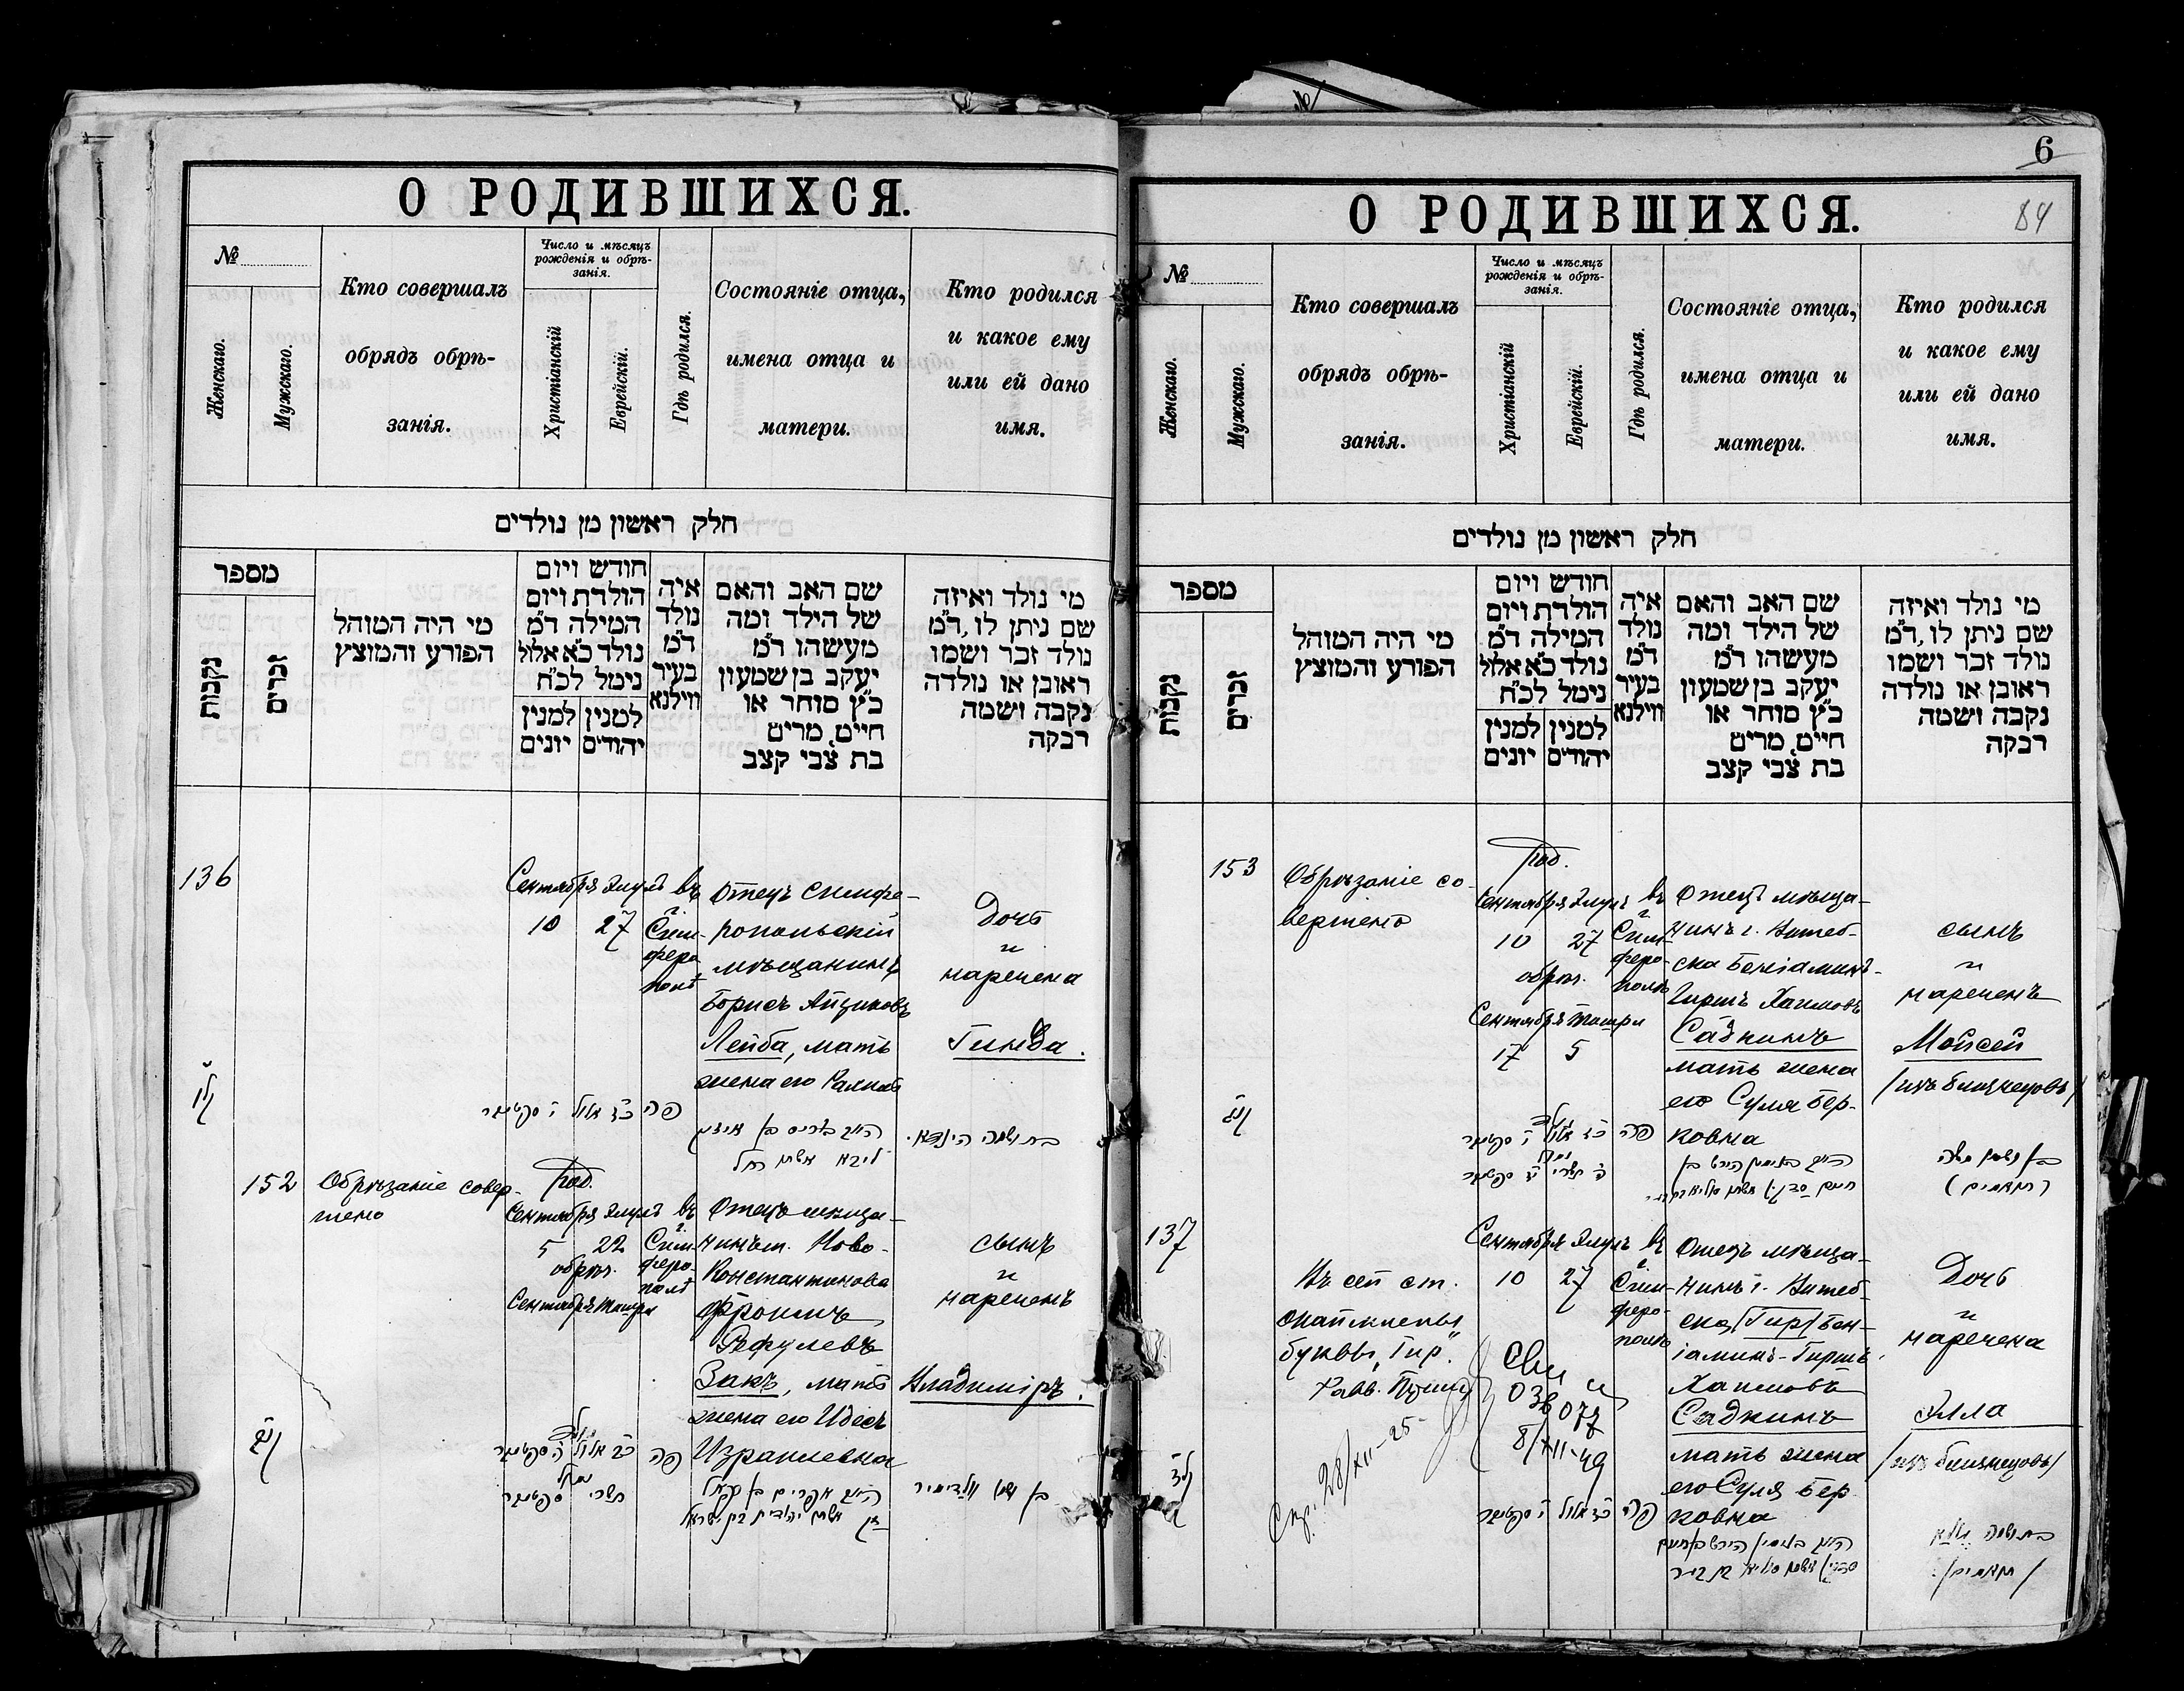 О РОДИВШИХСЯ.
№
Женскаго.
Мужскаго.
Кто совершалъ
обрядъ обрѣ-
занія.
Число и мѣсяцъ
рожденія и обрѣ-
занія.
Христіанскій
Еврейскій.
Гдѣ родился.
Состояніе отца,
имена отца и
матери.
Кто родился
и какое ему
или ей дано
имя.
חלק ראשון מן נולדים
מספר
נקבות
זכרים
מי היה המוהל
הפורע והמוצץ
חודש ויום
הולדת ויום
המילה ד״מ
נולד כ״א אלול
נימל לכ״ח
למנין יהודים
למנין יונים
איה
נולד
ד״מ
בעיר
ווילנא
שם האב והאם
של הילד ומה
מעשהו ד״מ
יעקב בן שמעון
כ״ץ סוחר או
חייט, מרים
בת צבי קצב
מי נולד ואיזה
שם ניתן לו, ד״מ
נולד זכר ושמו
ראובן או נולדה
נקבה ושמה
רבקה
136
Сентября Элулъ
10 27
въ
г.
Сим-
феро
полѣ
Отецъ симфе-
ропольскій
мѣщанинъ
Борисъ Айзиковъ
Лейба, мать
жена его Рахиль
Дочь
и
наречена
פה כ״ז אלול י׳ סקטמבר
152
Обрѣзаніе совер-
шено
Род.
Сентября Элулъ
5 22
обрѣз.
Сентября Тишри
въ
г.
Сим-
феро-
полѣ
Отецъ мѣща-
нинъ г. Ново-
Константинова
Фроимъ
Рефулевъ
Закъ, мать
жена его Идесъ
Израилевна
сынъ
и
нареченъ
Владиміръ.
פה
6
84
О РОДИВШИХСЯ.
№
Женскаго.
Мужскаго.
Кто совершалъ
обрядъ обрѣ-
занія.
Число и мѣсяцъ
рожденія и обрѣ-
занія.
Христіанскій
Еврейскій.
Гдѣ родился.
Состояніе отца,
имена отца и
матери.
Кто родился
и какое ему
или ей дано
имя.
חלק ראשון מן נולדים
מספר
נקבות
זכרים
מי היה המוהל
הפורע והמוצץ
חודש ויום
הולדת ויום
המילה ד״מ
נולד כ״א אלול
נימל לכ״ח
למנין יהודים
למנין יונים
איה
נולד
ד״מ
בעיר
ווילנא
שם האב והאם
של הילד ומה
מעשהו ד״מ
יעקב בן שמעון
כ״ץ סוחר או
חייט, מרים
בת צבי קצב
מי נולד ואיזה
שם ניתן לו, ד״מ
נולד זכר ושמו
ראובן או נולדה
נקבה ושמה
רבקה
153
Обрѣзаніе со-
вершено
Род.
Сентября Элулъ
10 27
обрѣз.
Сентября Тишри
17 5
въ
г.
Сим-
феро-
полѣ
Отецъ мѣща-
нинъ г. Витеб-
ска Беніаминъ-
Гиршъ Хаимовъ
Садкинъ
мать жена
его Суля Бер-
ковна
сынъ
и
нареченъ
Мойсей
/изъ близнецовъ/
בן ושמו משה
(תאומים)
137
Въ сей ст.
буквы „Гир."
Равв.
Спр. 28/XII-25
036077
8/XII-49
Сентября Элулъ
10 27
въ
г.
Сим-
феро-
полѣ
Отецъ мѣща-
нинъ г. Витеб-
ска /Гир/ Бен-
іаминъ-Гиршъ
Хаимовъ
Садкинъ
мать жена
его Суля Бер
ковна
Дочь
и
наречена
Элла
/изъ близнецовъ/
פה כ״ז אלול י׳ סקטמבר
/תאומים/